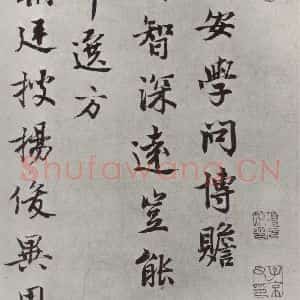 安學問博贍
智深遠豈能
選方
廷搜揚俊異
Shufawang.CN